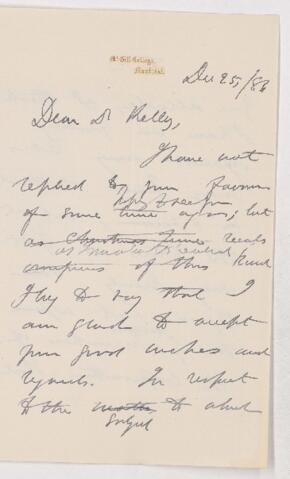 McGill College,
Montreal.
Dec 25/86
Dear Dr Kelly,
I have not
replied to your favour
of some time ago; but
as Christmas time heals
of this kind
I beg to say that I
am glad to accept
your good wishes and
regards. In respect
to the matter to which
subject